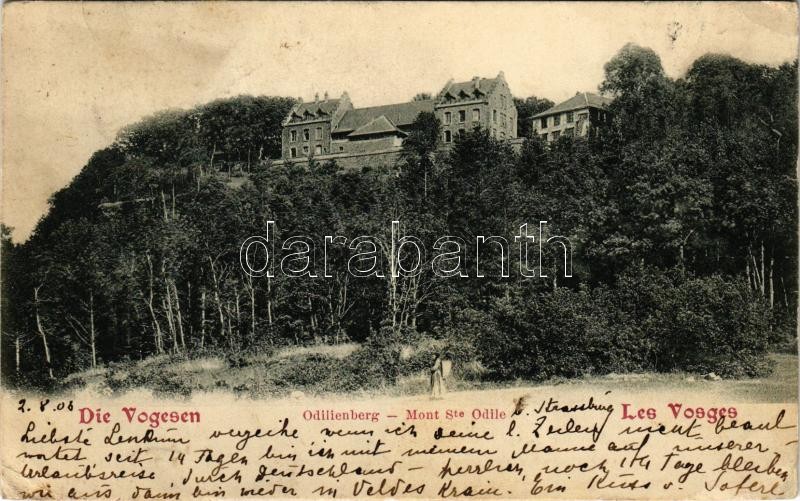 darabanth
2.8.05 Die Vogesen Odilienberg – Mont Ste Odile b. Strassburg Les Vosges
Liebste verzeihe wenn ich deine l. Zeilen nicht beaut
wortet seit 14 Tagen bin ich mit meinem Manne auf unserer
Urlaubsreise, durch Deutschland – herrlich, noch 14 Tage bleiben
wir aus, dann bin wieder in Veldes Krain. Ein Kuss v.